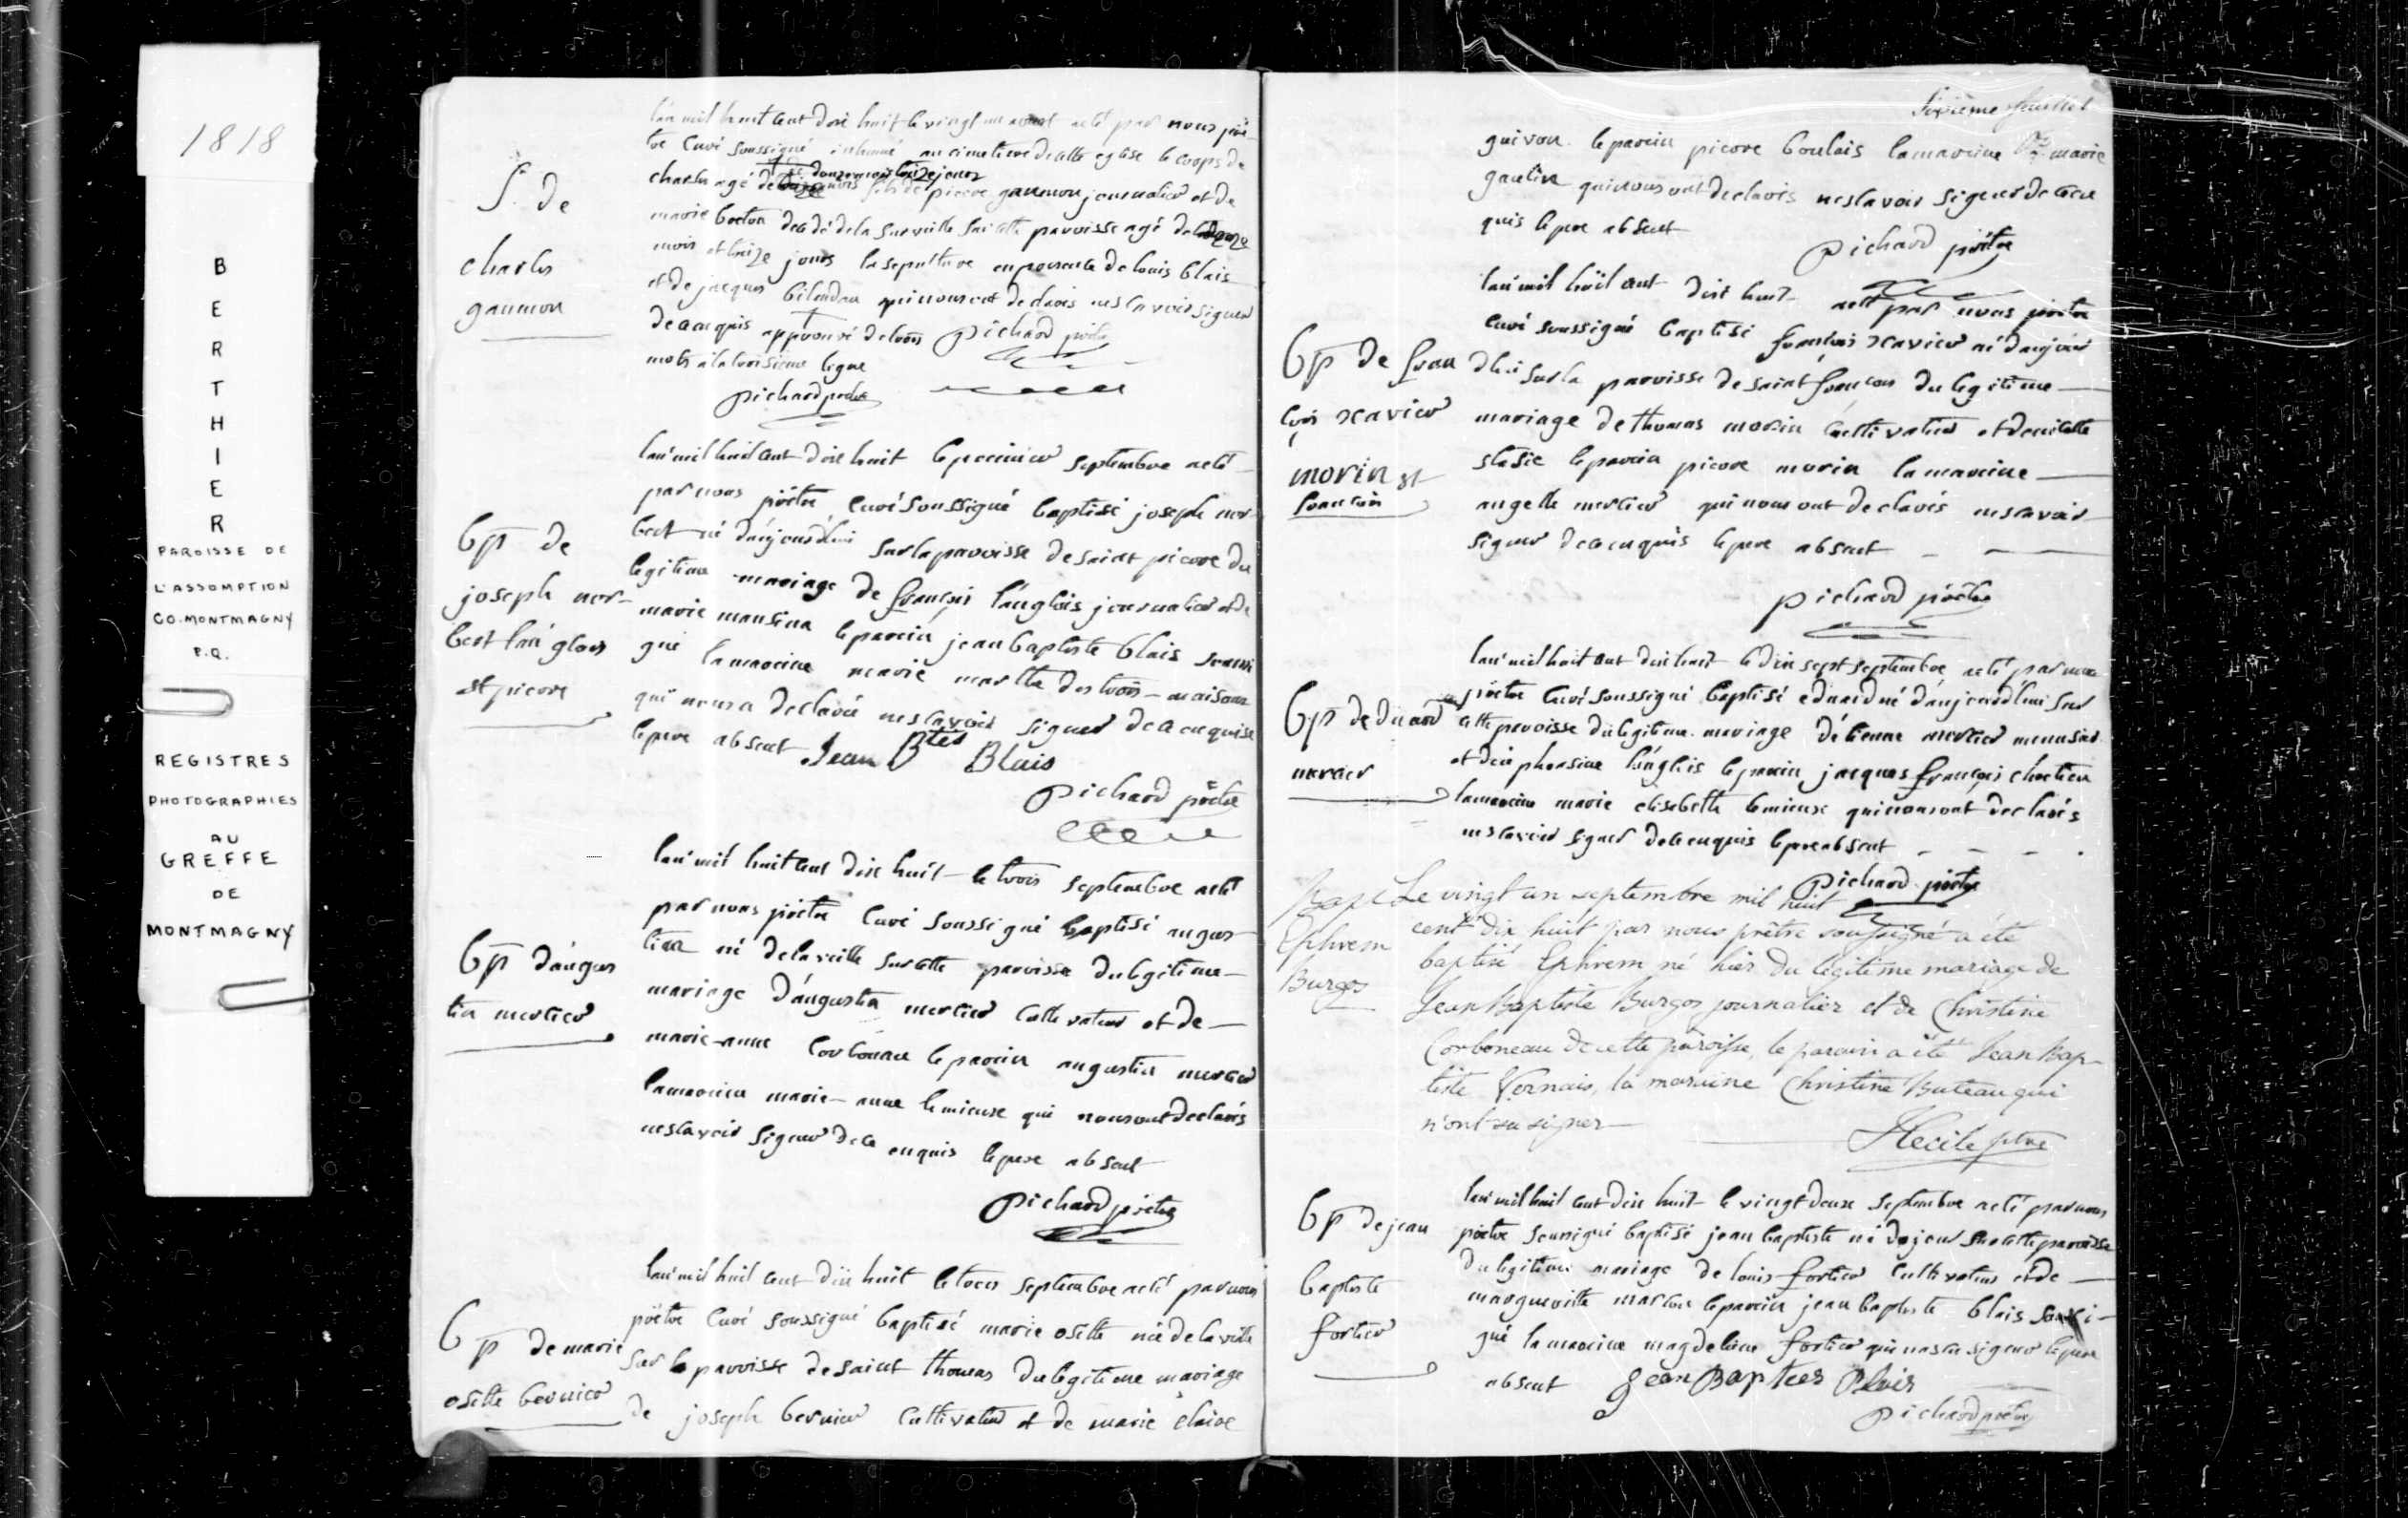 1818
B
E
R
T
H
I
E
R
PAROISSE DE
L'ASSOMPTION
CO. MONTMAGNY
P.Q.
REGISTRES
PHOTOGRAPHIES
AU
GREFFE
DE
MONTMAGNY
S. de
charles
gaumon
lan mil huit cent dix huit le vingt aoust acté par nous prê-
tre curé soussigné inhumé au cimetiere de cette eglise le corps de
charles agé de fils de picore gaumon journalier et de
marie boeton decedé de la surveille sur cette paroisse agé de
mois et treize jours la sepulture en presence de louis blais
et de jacques bilodau qui nous ont declarés ne scavoir signer
de ce enquis approuvé de trois pichard prêtre
mots a la troisieme ligne
pichard prêtre
bp de
joseph nor-
bert lan'glois
st picore
lan'mil huit cent dix huit le premier septembre acté
par nous prêtre curé soussigné baptisé joseph nor
bert né d'aujourd'hui sur la paroisse de saint picore du
legitime mariage de françois l'anglois journalier et de
marie mansina le parein jean baptiste blais soussi
gné la mareine marie marthe des trois-maisons
qui nous a declaré ne scavoir signer de ce enquise
le pere absent Jean Btes Blais
pichard prêtre
bp d'augus
tin mercier
lan'mil huit cent dix huit le trois septembre acté
par nous prêtre curé soussigné baptisé augus
tin né de la veille sur cette paroisse du legitime
mariage d'augustin mercier cultivateur et de
marie-anne corbonau le parein augustin mercier
la mareine marie-anne lemieux qui nous ont declarés
ne scavoir signer de ce enquis le pere absent
pichard prêtre
bp de marie
osithe bernier
lan'mil huit cent dix huit le trois septembre acté par nous
prêtre curé soussigné baptisé marie osithe née de la veille
sur la paroisse de saint thomas du legitime mariage
de joseph bernier cultivateur et de marie claire
sixième feuillet
guivon le parein picore boulais la mareine marie
gaulin qui nous ont declarés ne scavoir signer de ce en
quis le pere absent
pichard prêtre
bp de fran
çois xavier
morin st
françois
lan'mil huit cent dix huit acté par nous prêtre
curé soussigné baptisé françois xavier né d'aujour
d'hui sur la paroisse de saint françois du legitime
mariage de thomas morin cultivateur et de
stasie le parein picore morin la mareine
angelle mercier qui nous ont declarés ne scavoir
signer de ce enquis le pere absent
pichard prêtre
bp deduard
mercier
lan'mil huit cent dix huit le dix sept septembre acté par nous
prêtre curé soussigné baptisé eduard né d'aujourd'hui sur
cette paroisse du legitime mariage d'étienne mercier menusier
et d'euphrosine l'anglois le parein jacques françois chretien
la mareine marie elisebette lemieux qui nous ont declarés
ne scavoir signer de ce enquis le pere absent
pichard prêtre
Bapt
Ephrem
Burgos
Le vingt un septembre mil huit
cent dix huit par nous prêtre soussigné a été
baptisé Ephrem né hier du légitime mariage de
Jean Baptiste Burgos journalier et de Christine
Corboneau de cette paroisse, le parain a été Jean Bap-
tiste Vernais, la maraine Christine Buteau qui
n'ont su signer
Hecile ptre
bp de jean
baptiste
fortier
lan'mil huit cent dix huit le vingt deux septembre acté par nous
prêtre soussigné baptisé jean baptiste né du jour sur cette paroisse
du legitime mariage de louis fortier cultivateur et de
marguerite le parein jean baptiste blais soussi-
gné la mareine magdeleine fortier qui na scu signer le pere
absent Jean Baptes Blais
pichard prêtre